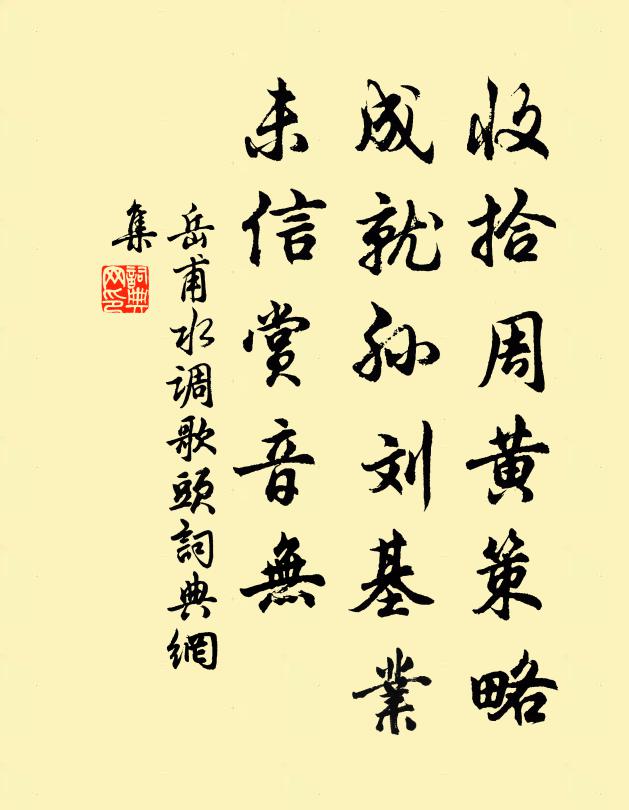 收拾周黄策略
成就孙刘基業
未信賞音無
岳甫水调歌頭詞典網
集
詞典
网印